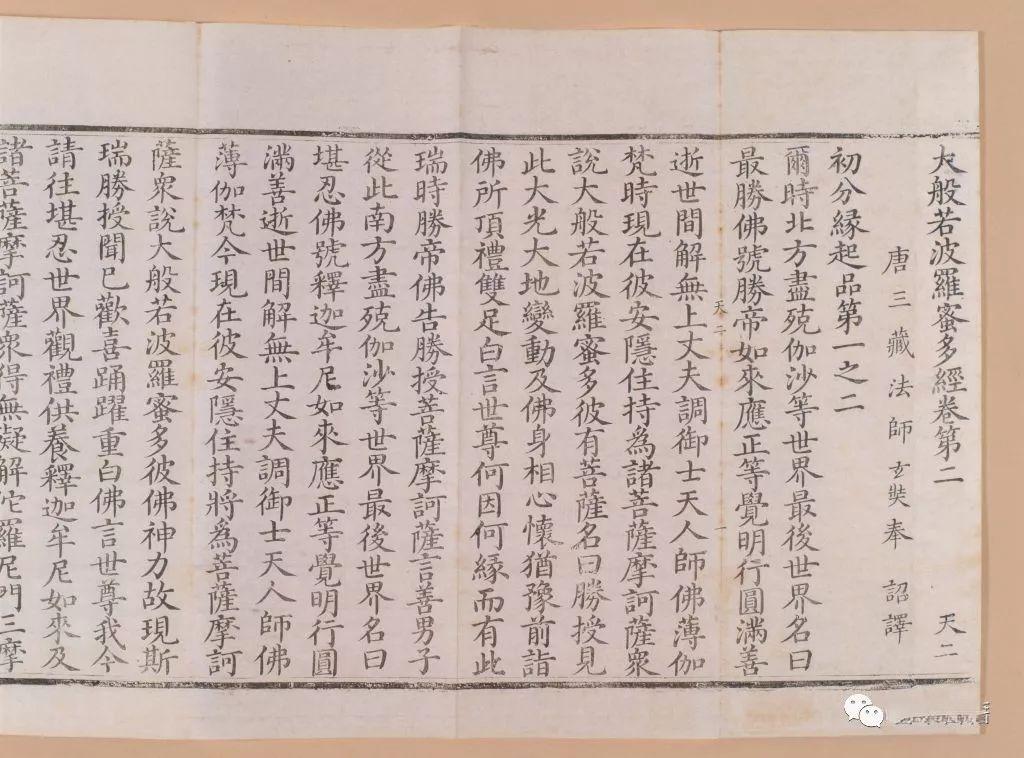 大般若波羅蜜多經卷第二 天二
唐三藏法師玄奘奉 詔譯
初分緣起品第一之二
爾時北方盡殑伽沙等世界最後世界名曰
最勝佛號勝帝如來應正等覺明行圓滿善
天二 一
逝世間解無上丈夫調御士天人師佛薄伽
梵時現在彼安隱住持為諸菩薩摩訶薩衆
說大般若波羅蜜多彼有菩薩名曰勝授見
此大光大地變動及佛身相心懷猶豫前詣
佛所頂禮雙足白言世尊何因何緣而有此
瑞時勝帝佛告勝授菩薩摩訶薩言善男子
從此南方盡殑伽沙等世界最後世界名曰
堪忍佛號釋迦牟尼如來應正等覺明行圓
滿善逝世間解無上丈夫調御士天人師佛
薄伽梵今現在彼安隱住持將為菩薩摩訶
薩衆說大般若波羅蜜多彼佛神力故現斯
瑞勝授聞已歡喜踊躍重白佛言世尊我今
請往堪忍世界觀禮供養釋迦牟尼如來及
諸菩薩摩訶薩衆得無礙解陀羅尼門三摩